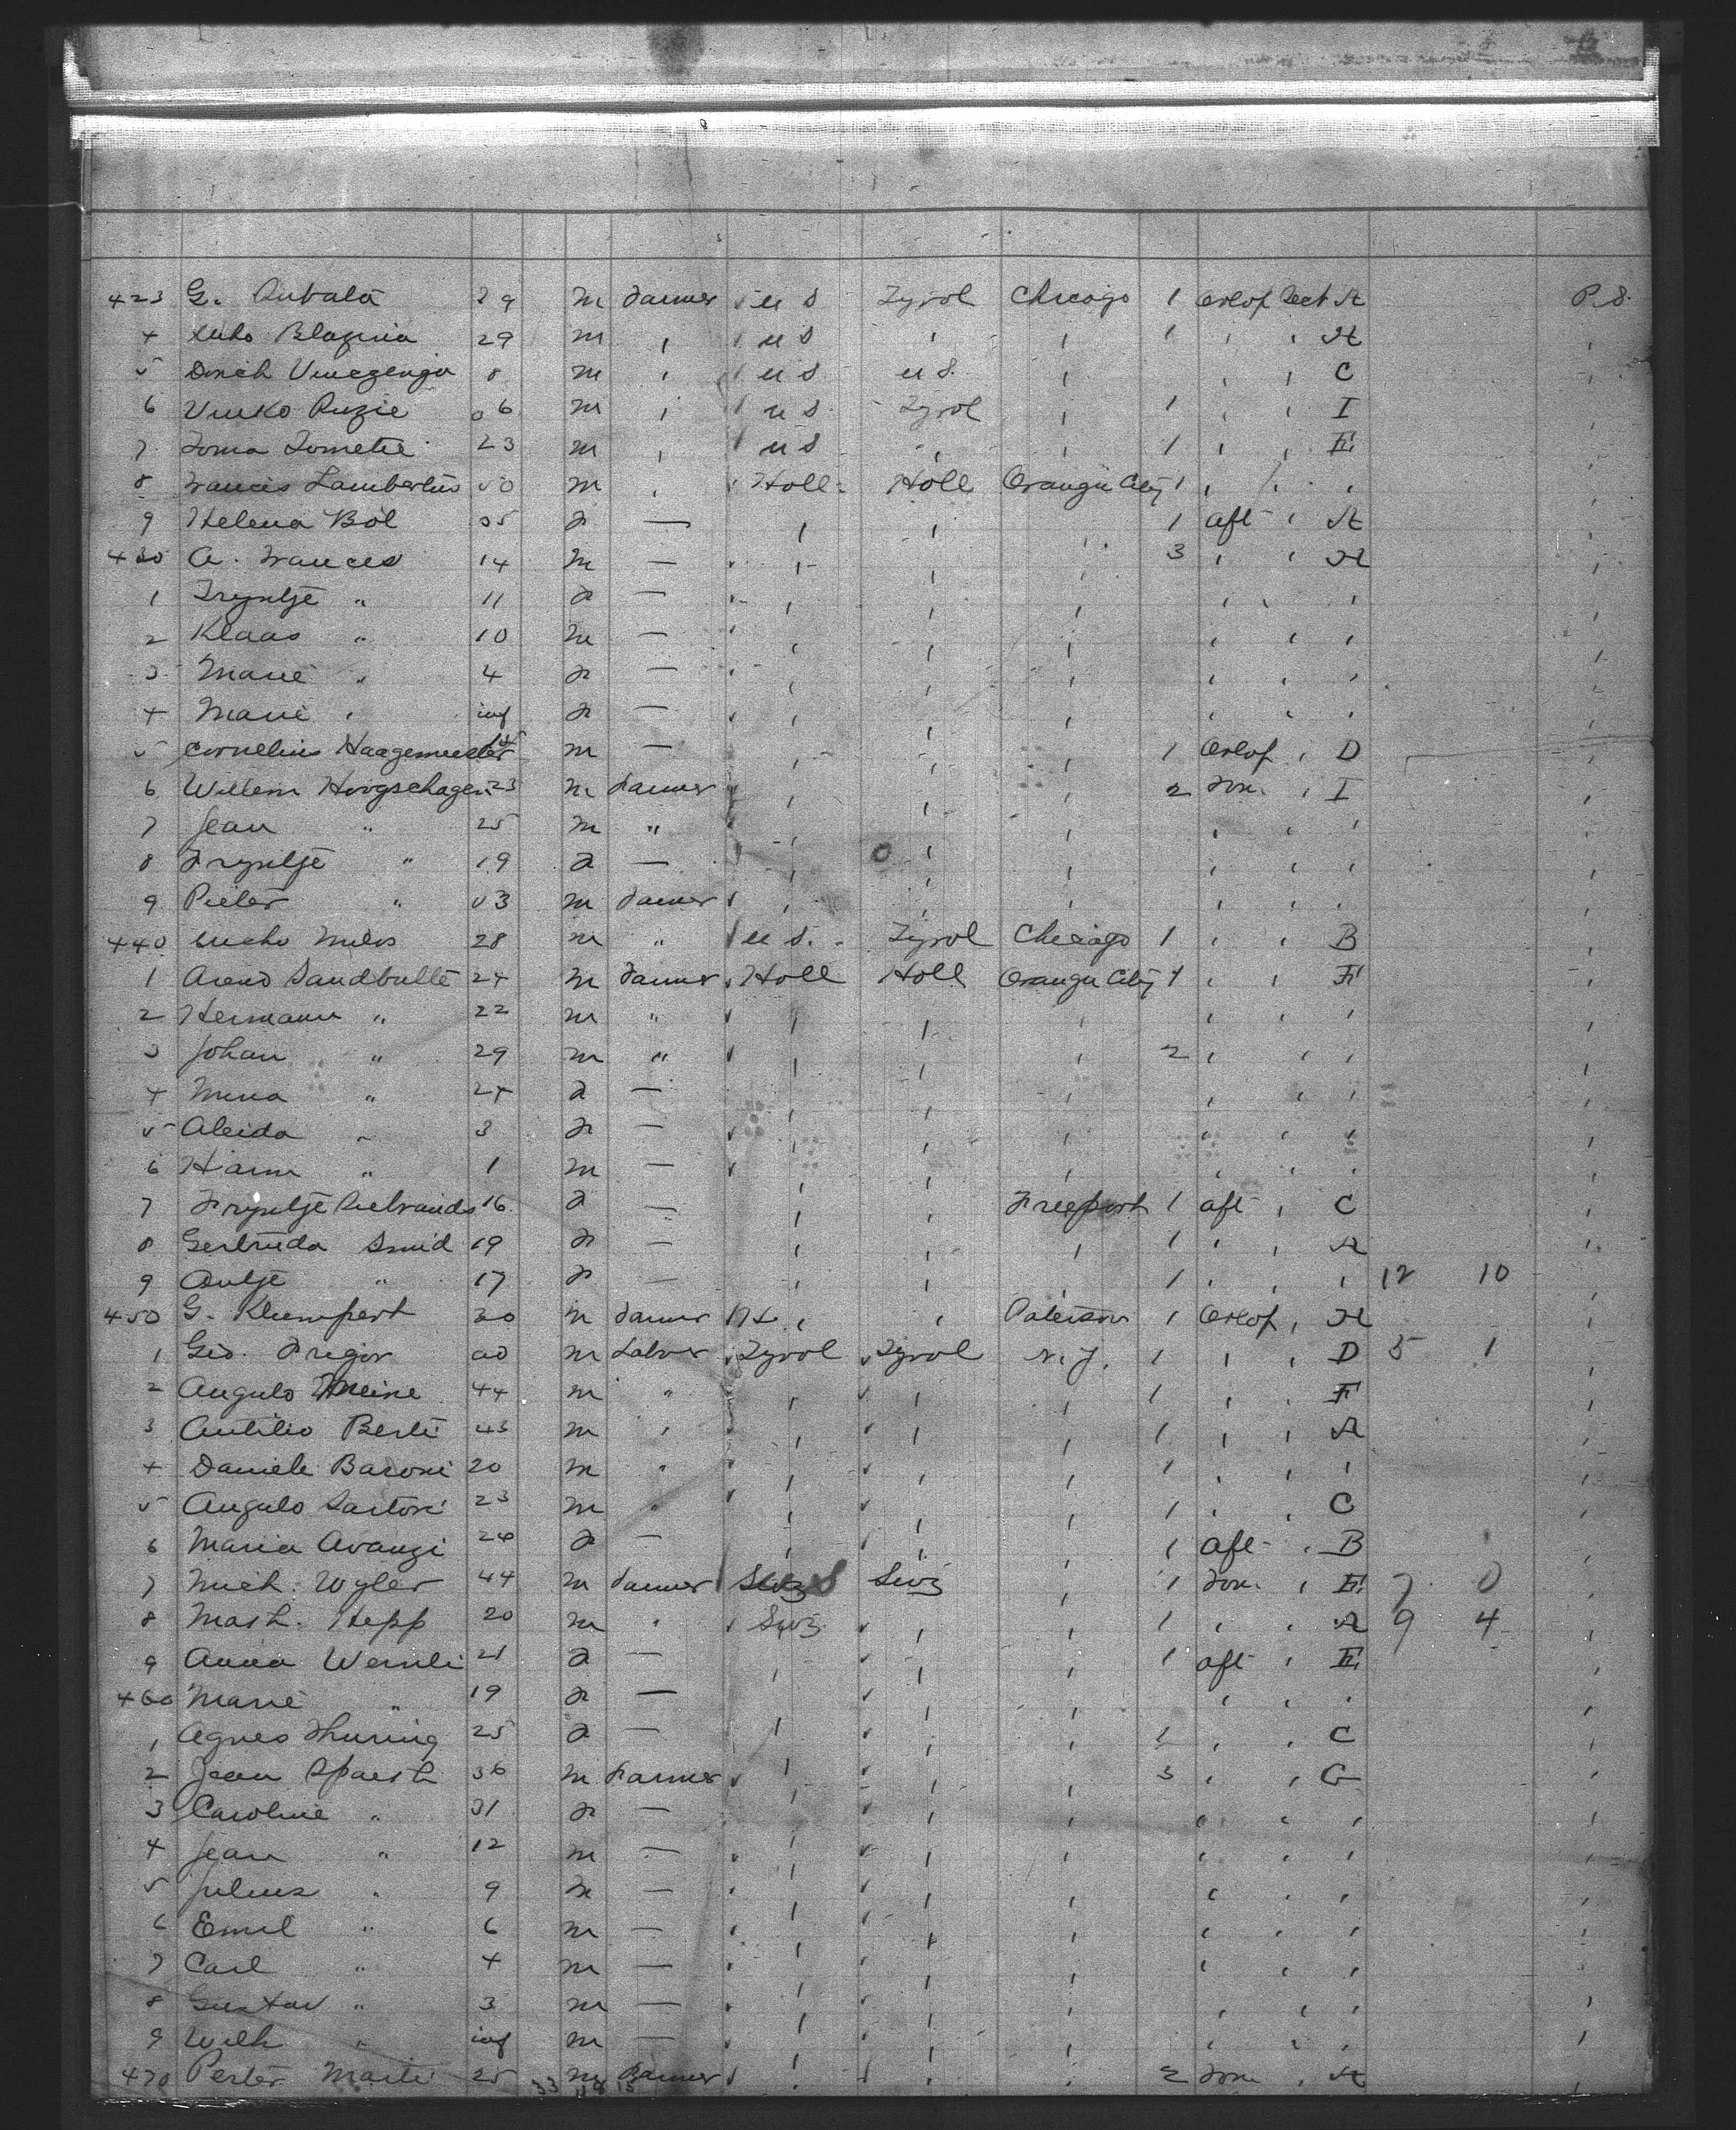 423 G. 29 m Farmer U S Tyrol Chicago 1 Orlop Deck A P.S.
4 29 m " U S " " 1 " " A "
5 8 m " U S U S. " " " C "
6 Vinko Ruzic m " U S Tyrol " 1 " " I "
7 Toma Tometic 23 m " U S " " 1 " " E "
8 Francis Lambertus m " Holl. Holl Orange City 1 " " "
9 Helena Bol 35 f — " " 1 aft " A "
430 A. Frances 14 m — " " " 3 " " A "
1 Tryntje " 11 f — " " " " " " "
2 Klaas " 10 m — " " " " " " "
3 Marie " 4 f — " " " " " " "
4 Marie " inf f — " " " " " " "
5 Cornelius Haagemeester m — " " " 1 Orlop " D "
6 Willem Hoogschagen 23 m Farmer " " " 2 For. " I "
7 Jean " 25 m " " " " " " " "
8 Tryntje " 19 f — " " " " " " "
9 Pieter " m Farmer " " " " " " "
440 Milos 28 m " U S. Tyrol Chicago 1 " " B "
1 Arend Sandbulte 24 m Farmer Holl Holl Orange City 1 " " F "
2 Hermann " 22 m " " " " " " " "
3 Johan " 29 m " " " " 2 " " " "
4 Mina " 24 f — " " " " " "
5 Aleida " 3 f — " " " " " " "
6 Harm " 1 m — " " " " " " "
7 Tryntje 16 f — " " Freeport 1 aft " C "
8 Gertruda Smid 19 f — " " " 1 " " A "
9 Antje " 17 f — " " 1 " " " 12 10
450 G. Klumpert 30 m Farmer " " Paterson 1 Orlop " A "
1 Gio. m Labrer Tyrol Tyrol N. J. 1 " " D 5 1 "
2 Angulo 44 m " " " " 1 " " F "
3 Antilio Berti 43 m " " " " 1 " " A "
4 Daniele Baroni 20 m " " " " 1 " " " "
5 Angulo Sartori 23 m " " " " 1 " " C "
6 Maria Avanzi 24 f — " " " 1 aft " B "
7 Mich. Wyler 44 m Farmer Swz " 1 For. " E 7 0 "
8 Math. Hepp 20 m " Swz. " " 1 " " A 9 4 "
9 Anna Wernli 21 f — " " " 1 aft " E "
460 Marie " 19 f — " " " " " "
1 Agnes Thuring 25 f — " " " 1 " " C "
2 Jean 36 m Farmer " " " 3 " " G "
3 Caroline " 31 f — " " " " " " "
4 Jean " 12 m — " " " " " " "
5 Julius " 9 m — " " " " " " "
6 Emil " 6 m — " " " " " " "
7 Carl " 4 m — " " " " " " "
8 Gustav " 3 m — " " " " " " "
9 Wilh " inf m — " " " " " " "
470 Peter Marti 25 m Farmer " " " 2 For. " A "